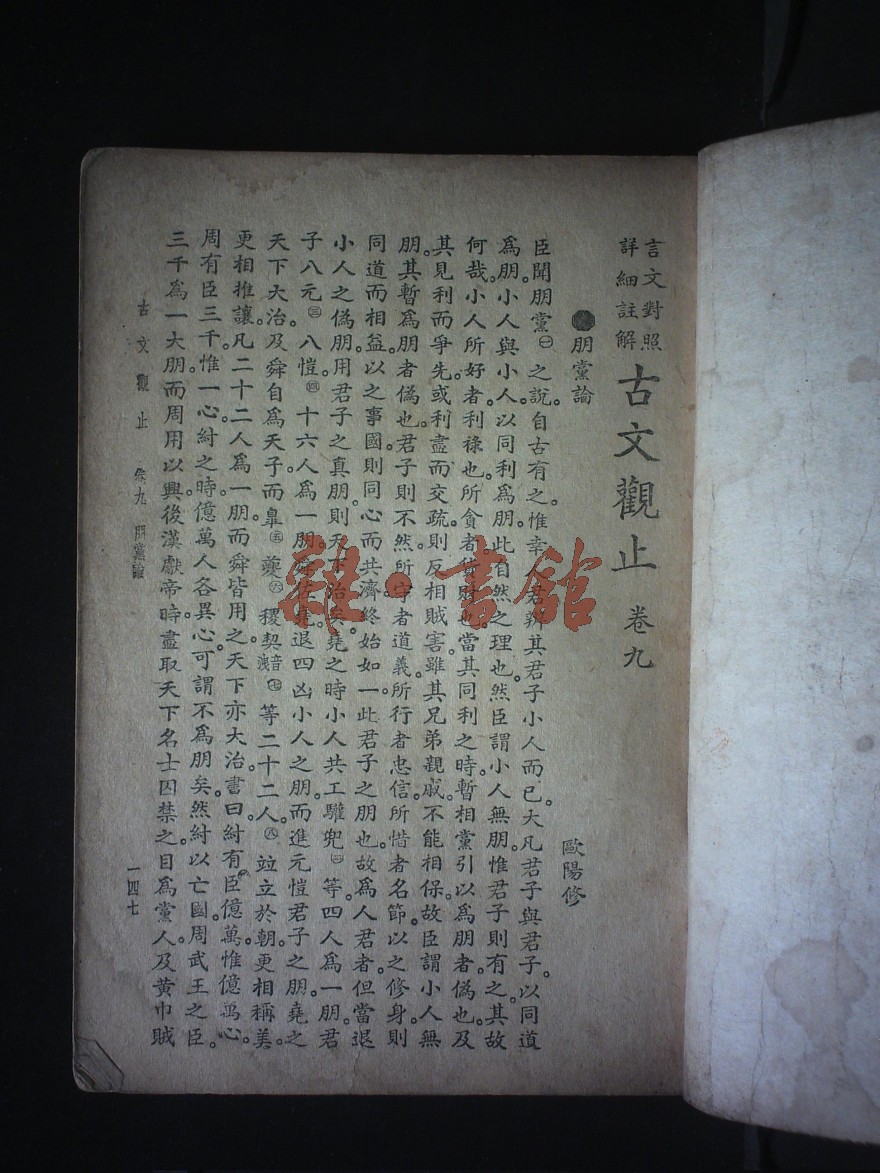 言文對照
詳細註解
古文觀止 卷九
朋黨論
歐陽修
臣聞朋黨㊀之說。自古有之。惟幸人君辨其君子小人而已。大凡君子與君子。以同道
爲朋。小人與小人。以同利爲朋。此自然之理也。然臣謂小人無朋。惟君子則有之。其故
何哉。小人所好者。利祿也。所貪者。貨財也。當其同利之時。暫相黨引以爲朋者。僞也。及
其見利而爭先。或利盡而交疏。則反相賊害。雖其兄弟親戚。不能相保。故臣謂小人無
朋。其暫爲朋者僞也。君子則不然。所守者道義。所行者忠信。所惜者名節。以之修身。則
同道而相益。以之事國。則同心而共濟。終始如一。此君子之朋也。故爲人君者。但當退
小人之僞朋。用君子之真朋。則天下治矣。堯之時。小人共工驩兜㊁等四人爲一朋。君
子八元㊂八愷㊃十六人爲一朋。舜佐堯。退四凶小人之朋。而進元愷君子之朋。堯之
天下大治。及舜自爲天子。而皐㊄夔㊅稷契㊆等二十二人。㊇竝立於朝。更相稱美。
更相推讓。凡二十二人爲一朋。而舜皆用之。天下亦大治。書曰。紂有臣億萬。惟億萬心。
周有臣三千。惟一心。紂之時。億萬人各異心。可謂不爲朋矣。然紂以亡國。周武王之臣。
三千爲一大朋。而周用以興。後漢獻帝時。盡取天下名士囚禁之。目爲黨人。及黃巾賊
古文觀止 卷九 朋黨論
一四七
雜·書館